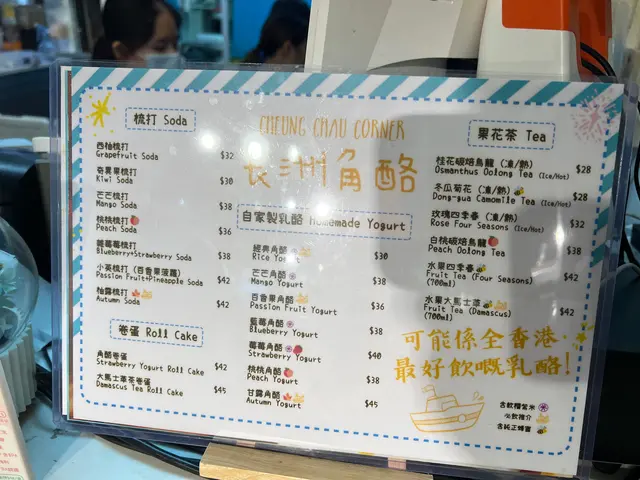 CHEUNG CHAU CORNER
長洲角酪
梳打 Soda
西柚梳打
Grapefruit Soda $32
奇異果梳打
Kiwi Soda $30
芒芒梳打
Mango Soda $38
桃桃梳打
Peach Soda $36
藍莓莓梳打
Blueberry+Strawberry Soda $38
小英梳打 (百香果菠蘿)
Passion Fruit+Pineapple Soda $38
柚露梳打
Autumn Soda $42
卷蛋 Roll Cake
角酪卷蛋
Strawberry Yogurt Roll Cake $42
大馬士革茶卷蛋
Damascus Tea Roll Cake $45
自家製乳酪 Homemade Yogurt
經典角酪
Rice Yogurt $30
芒芒角酪
Mango Yogurt $38
百香果角酪
Passion Fruit Yogurt $36
藍莓角酪
Blueberry Yogurt $38
莓莓角酪
Strawberry Yogurt $40
桃桃角酪
Peach Yogurt $38
甘露角酪
Autumn Yogurt $45
果花茶 Tea
桂花碳焙烏龍 (凍/熱)
Osmanthus Oolong Tea (Ice/Hot) $28
冬瓜菊花 (凍/熱)
Dong-gua Camomile Tea (Ice/Hot) $28
玫瑰四季春 (凍/熱)
Rose Four Seasons (Ice/Hot) $32
白桃碳焙烏龍
Peach Oolong Tea $38
水果四季春
Fruit Tea (Four Seasons) $42
(700ml)
水果大馬士革
Fruit Tea (Damascus) $42
(700ml)
可能係全香港
最好飲嘅乳酪!
含軟糯紫米
必飲推介
含純正蜂蜜